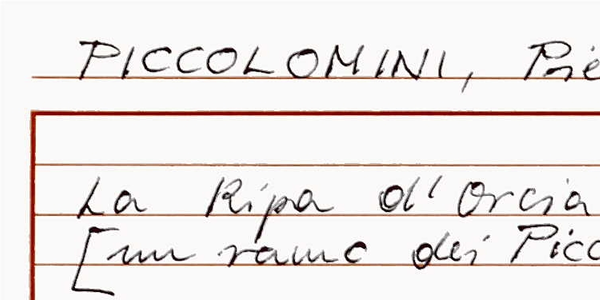 PICCOLOMINI, Piè
La Ripa d'Orcia
[un ramo dei Picc